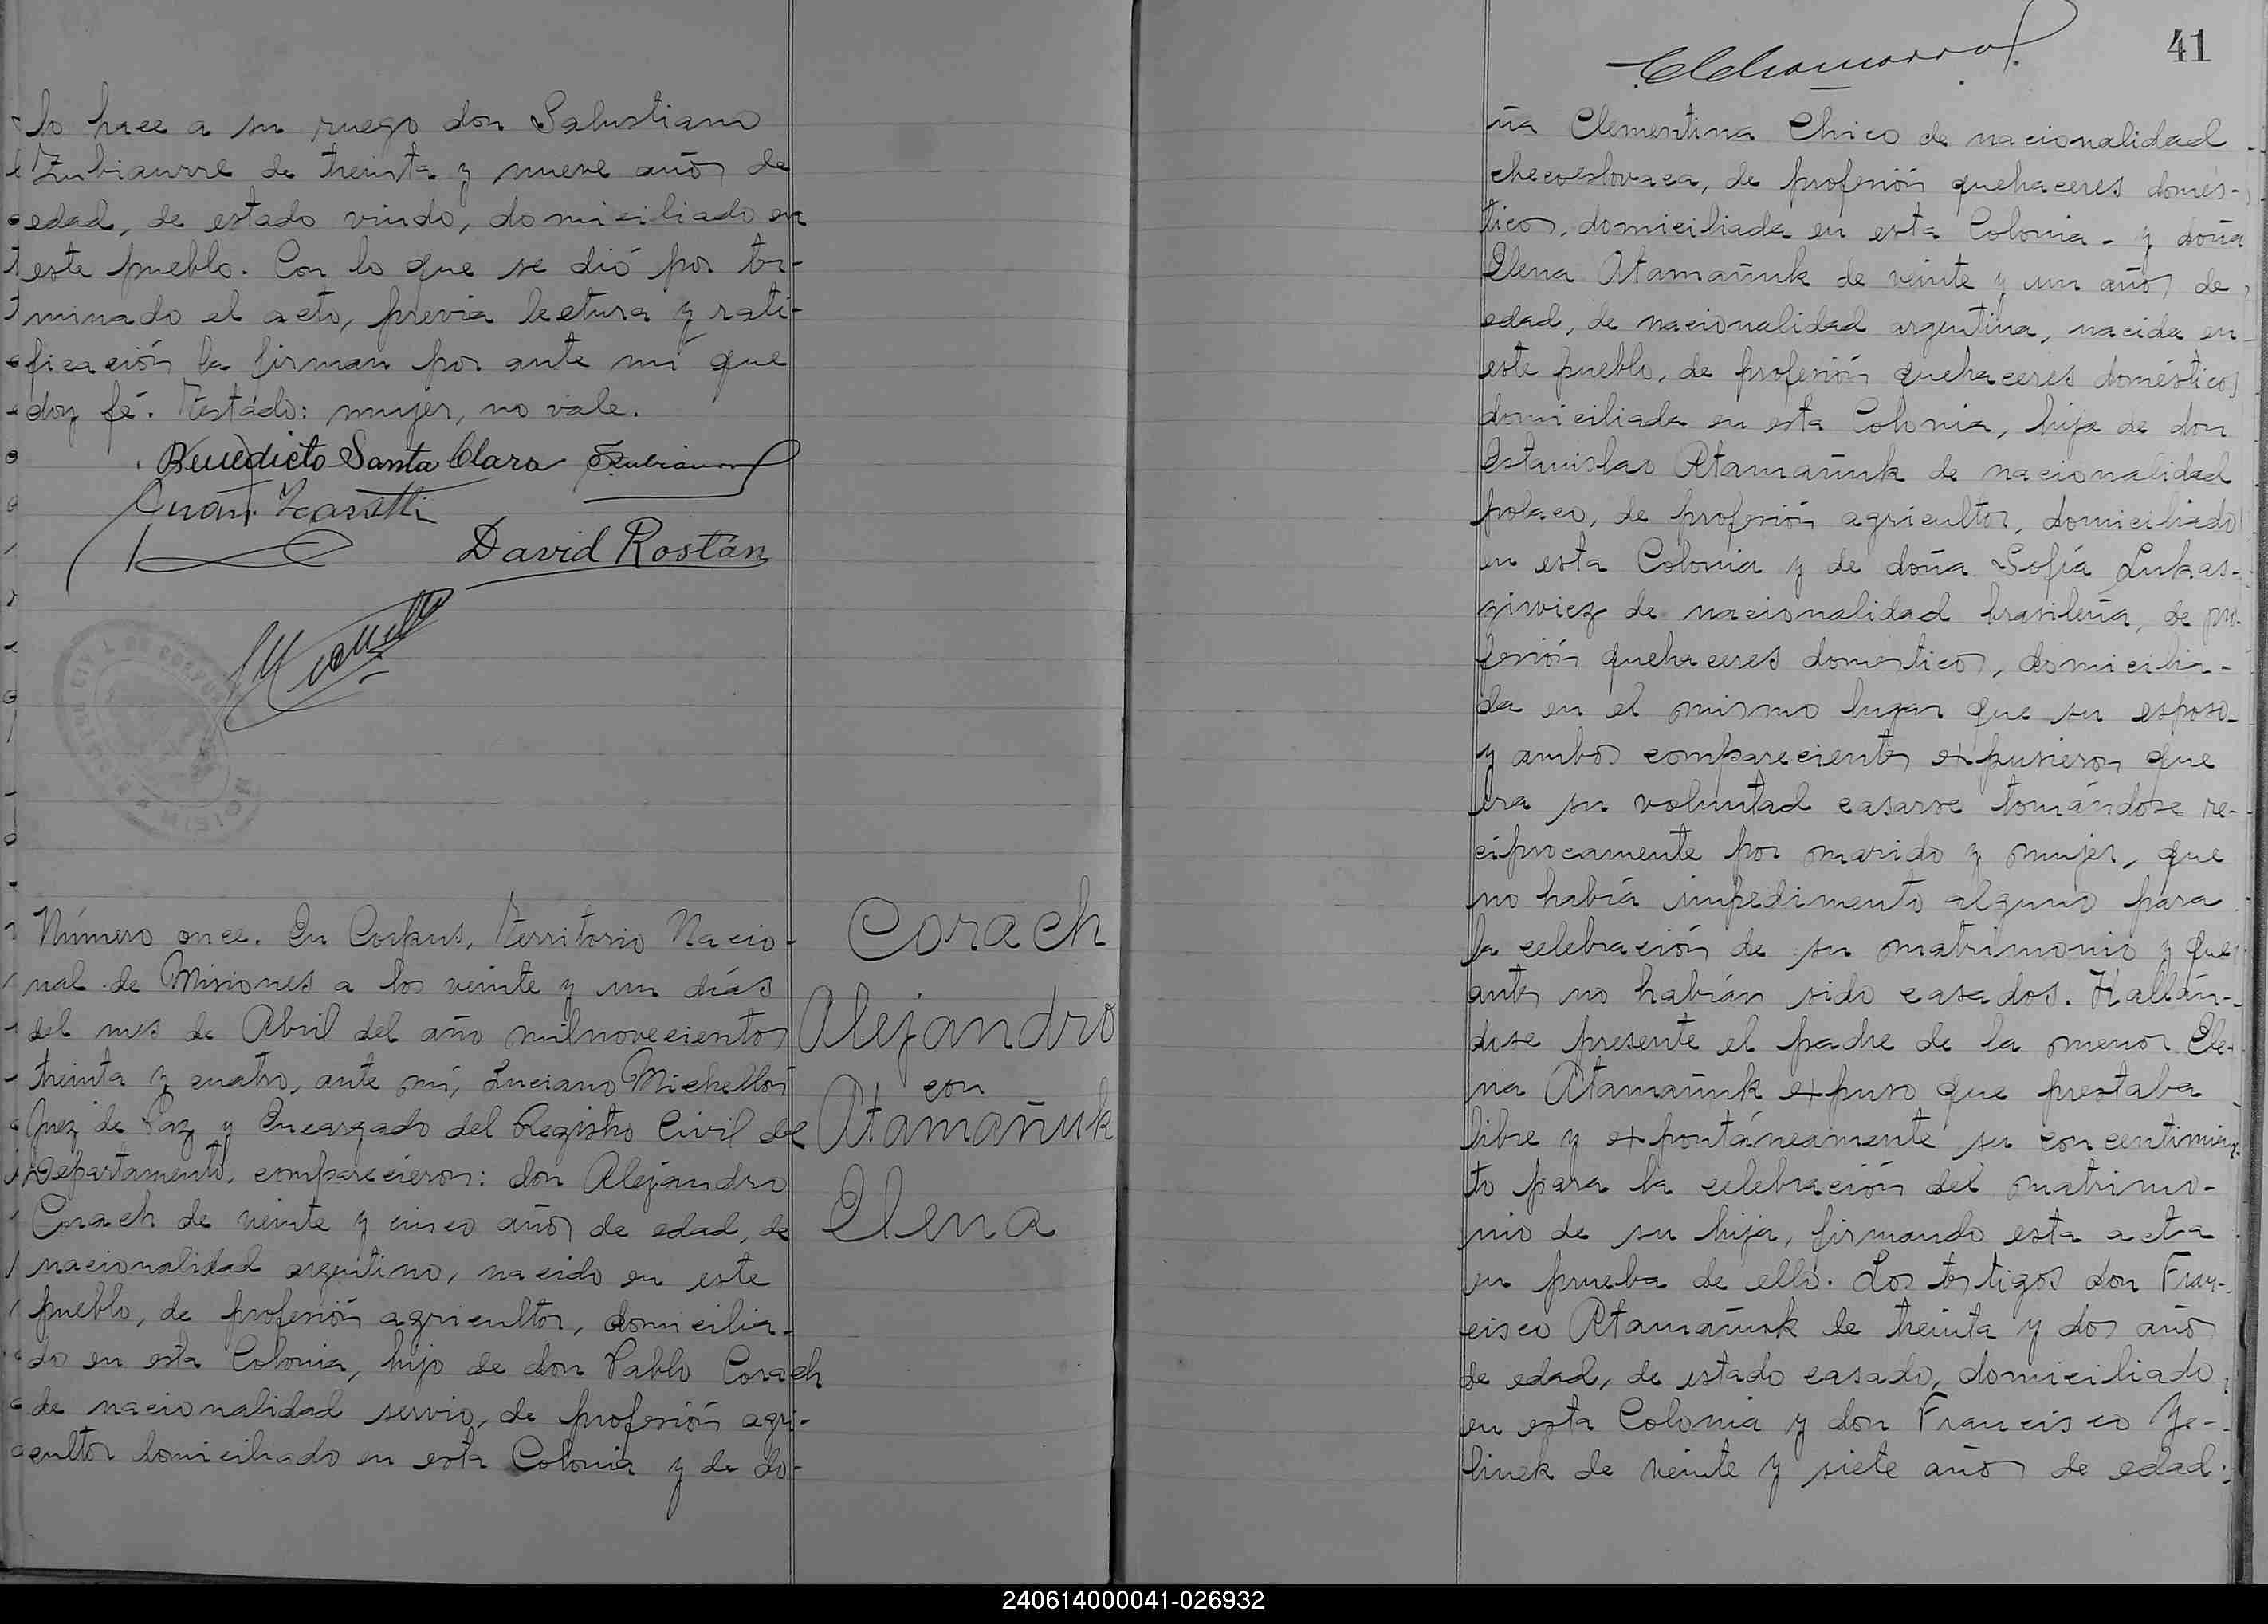 lo hace a su ruego don Salustiano
Zubiaurre de treinta y nueve años de
edad, de estado viudo, domiciliado en
este pueblo. Con lo que se dió por ter-
minado el acto, previa lectura y rati-
ficación la firman por ante mí que
doy fé. Testado: mujer, no vale.
Benedicto Santa Clara
Juan
David Rostán
Número once. En Corpus, Territorio Nacio-
nal de Misiones a los veinte y un días
del mes de Abril del año milnovecientos
treinta y cuatro, ante mí, Luciano Michellod
Juez de Paz y Encargado del Registro Civil del
Departamento, comparecieron: don Alejandro
Corach de veinte y cinco años de edad, de
nacionalidad argentino, nacido en este
pueblo, de profesión agricultor, domicilia-
do en esta Colonia, hijo de don Pablo Corach
de nacionalidad servio, de profesión agri-
cultor domiciliado en esta Colonia y de do-
Corach
Alejandro
con
Atamañuk
Elena
41
ña Clementina Chico de nacionalidad
checoeslovaca, de profesión quehaceres domés-
ticos, domiciliada en esta Colonia - y doña
Elena Atamañuk de veinte y un años de
edad, de nacionalidad argentina, nacida en
este pueblo, de profesión quehaceres domésticos
domiciliada en esta Colonia, hija de don
Estanislao Atamañuk de nacionalidad
polaco, de profesión agricultor, domiciliado
en esta Colonia y de doña Sofía Lukas-
ziwicz de nacionalidad brasileña, de pro-
fesión quehaceres domesticos, domicilia-
da en el mismo lugar que su esposo
y ambos comparecientes expusieron que
era su voluntad casarse tomándose re-
ciprocamente por marido y mujer, que
no había impedimento alguno para
la celebración de su matrimonio y que
antes no habían sido casados. Hallán-
dose presente el padre de la menor Ele-
na Atamañuk expuso que prestaba
libre y expontáneamente su concentimien-
to para la celebración del matrimo-
nio de su hija, firmando esta acta
en prueba de ello. Los testigos don Fran-
cisco Atamañuk de treinta y dos años
de edad, de estado casado, domiciliado
en esta Colonia y don Francisco Ye-
linek de veinte y siete años de edad.
240614000041-026932